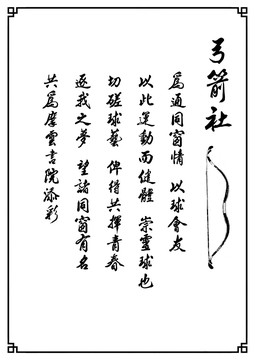 弓箭社
為通同窗情 以球會友
以此運動而健體 崇靈球也
切磋球藝 俾得共揮青春
逐我之夢 望諸同窗有名
共為摩雲書院添彩